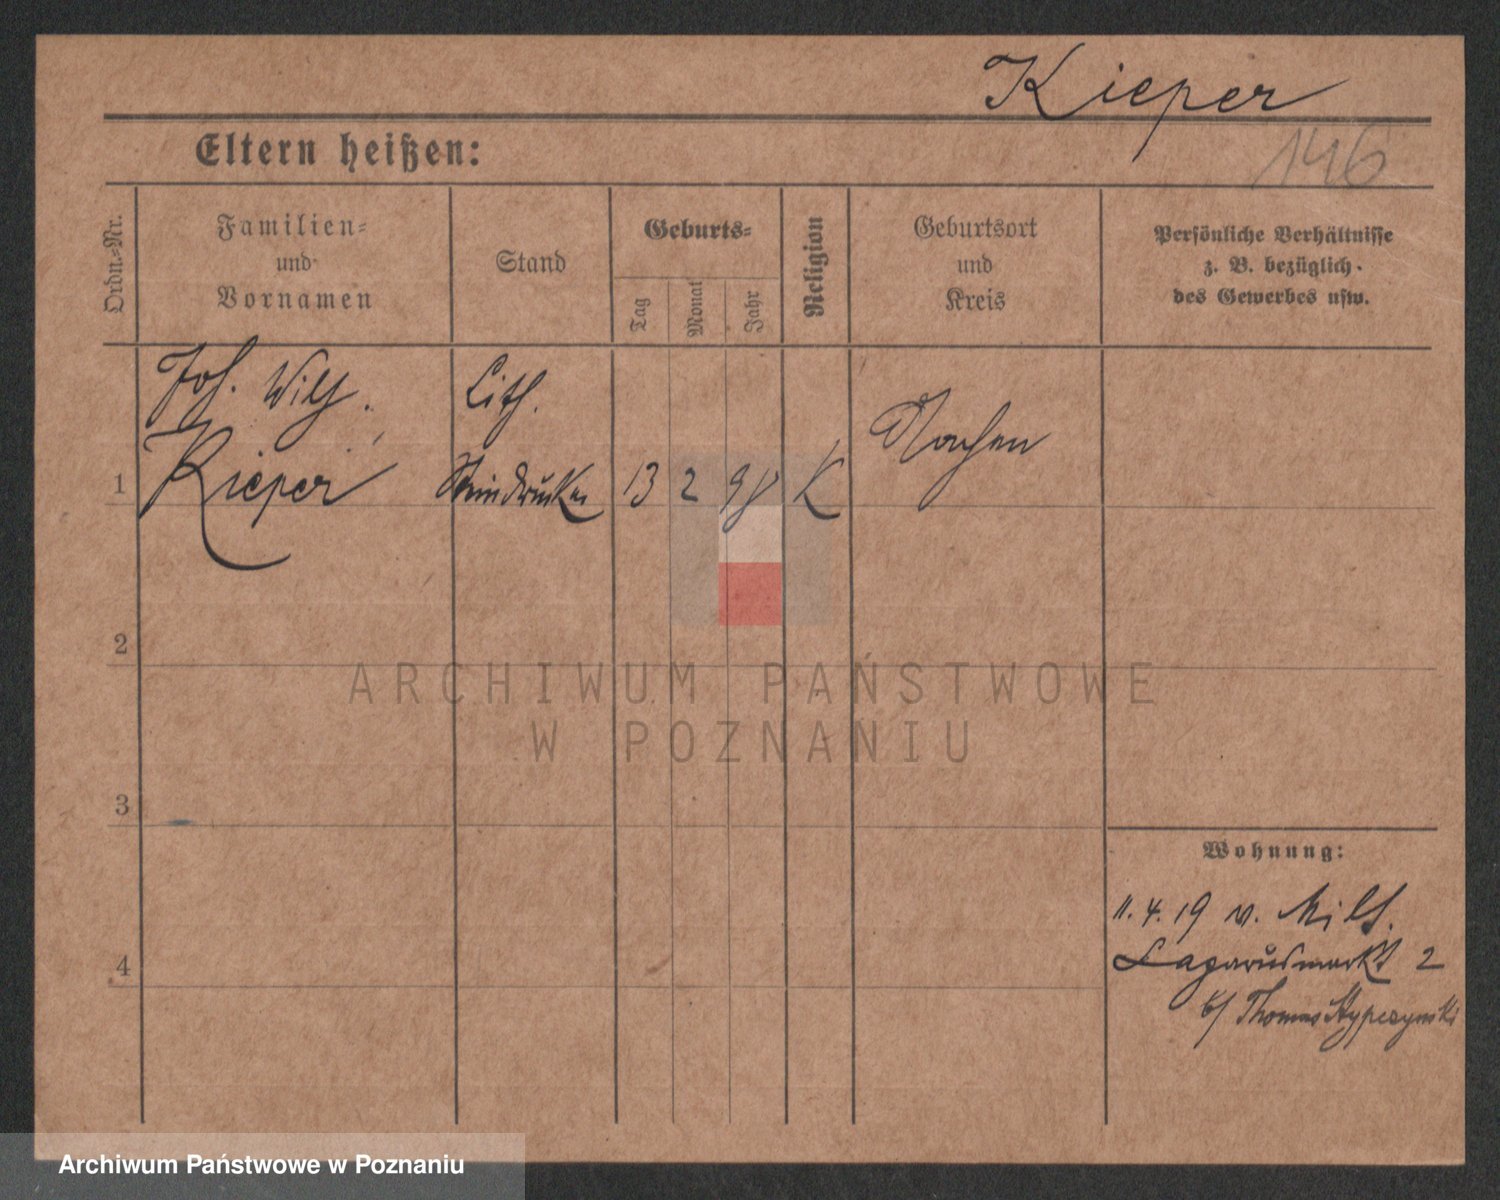 Kieper
146
Eltern heißen:
Ordn.-Nr.
Familien-
und
Vornamen
Stand
Geburts-
Tag
Monat
Jahr
Religion
Geburtsort
und
Kreis
Persönliche Verhältnisse
z. B. bezüglich
des Gewerbes usw.
Joh. Wilh.
Kieper
Lith.
Steindrucker
13 2 98 K
Aachen
1
2
3
4
Wohnung:
11. 4. 19 v. Milt.
Lazarusmarkt 2
b/ Thomas
ARCHIWUM PAŃSTWOWE
W POZNANIU
Archiwum Państwowe w Poznaniu